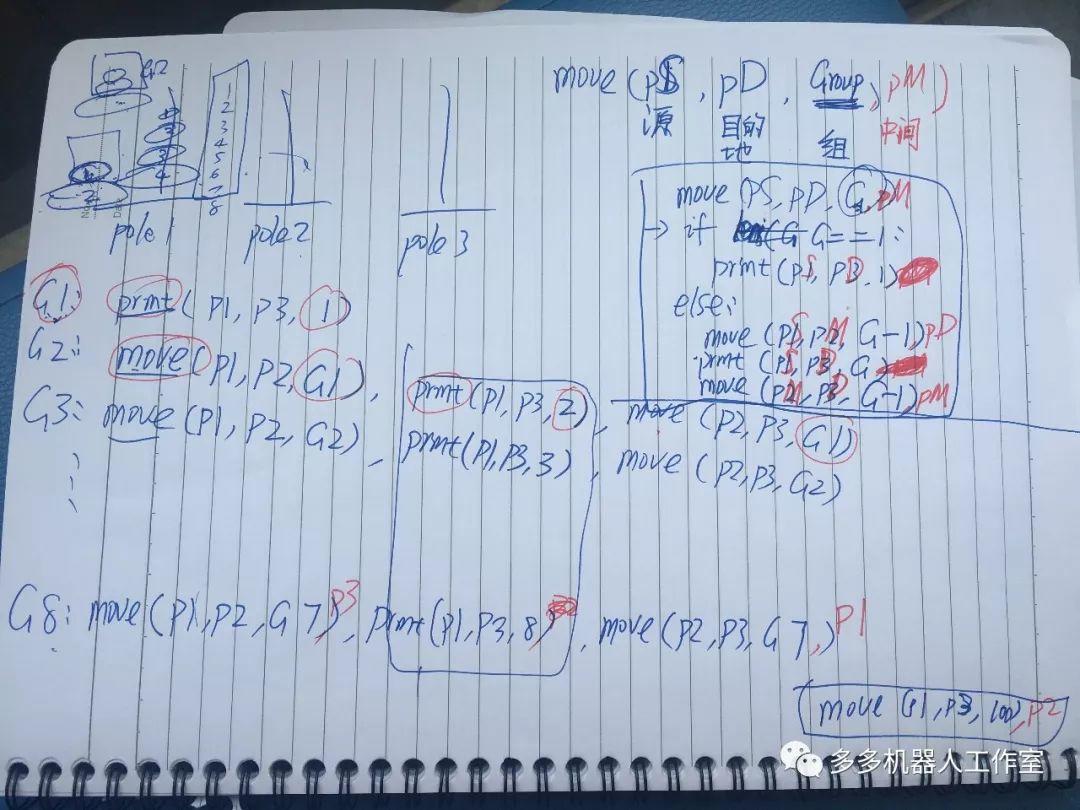 move (pS, pD, Group, pM)
源 目的地 组 中间
G2
1
2
3
4
5
6
7
8
pole 1 pole 2 pole 3
move (PS, PD, G, pM
→ if G==1:
print (pS, pD, 1)
else:
move (pS, pM, G-1) pD
print (pS, pD, G)
move (pM, pD, G-1) pM
G1: print( P1, P3, 1)
G2: move( P1, P2, G1), print(P1, P3, 2), move (P2, P3, G1)
G3: move (P1, P2, G2), print(P1, P3, 3), move (P2, P3, G2)
G8: move (P1, P2, G7, P3), print(P1, P3, 8), move (P2, P3, G7,) P1
move (P1, P3, 100, P2
多多机器人工作室